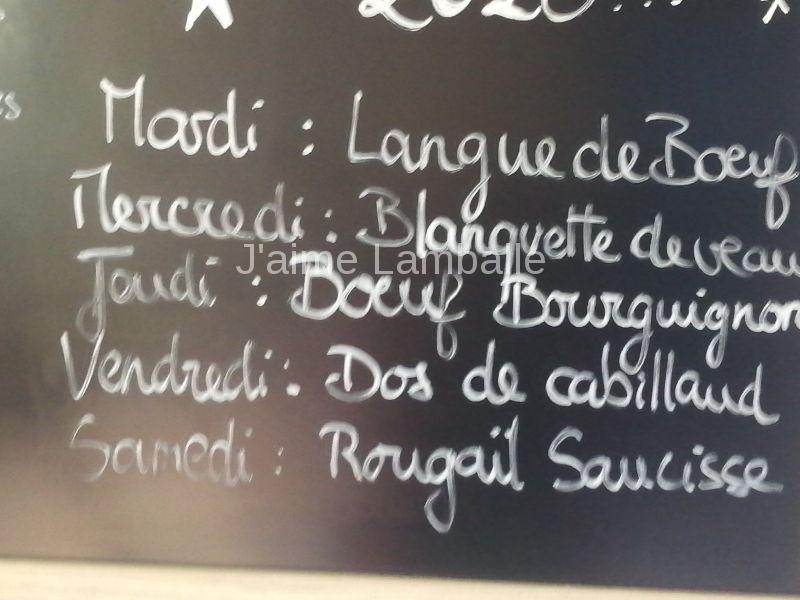 2020...
Mardi : Langue de Boeuf
Mercredi : Blanquette de veau
J'aime Lamballe
Jeudi : Boeuf Bourguignon
Vendredi : Dos de cabillaud
Samedi : Rougail Saucisse